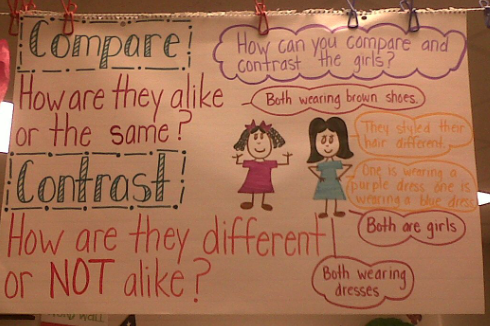 Compare
How are they alike
or the same?
Contrast
How are they different
or NOT alike?
How can you compare and
contrast the girls?
Both wearing brown shoes.
They styled their
hair different.
One is wearing a
purple dress one is
wearing a blue dress
Both are girls
Both wearing
dresses
WORD WALL